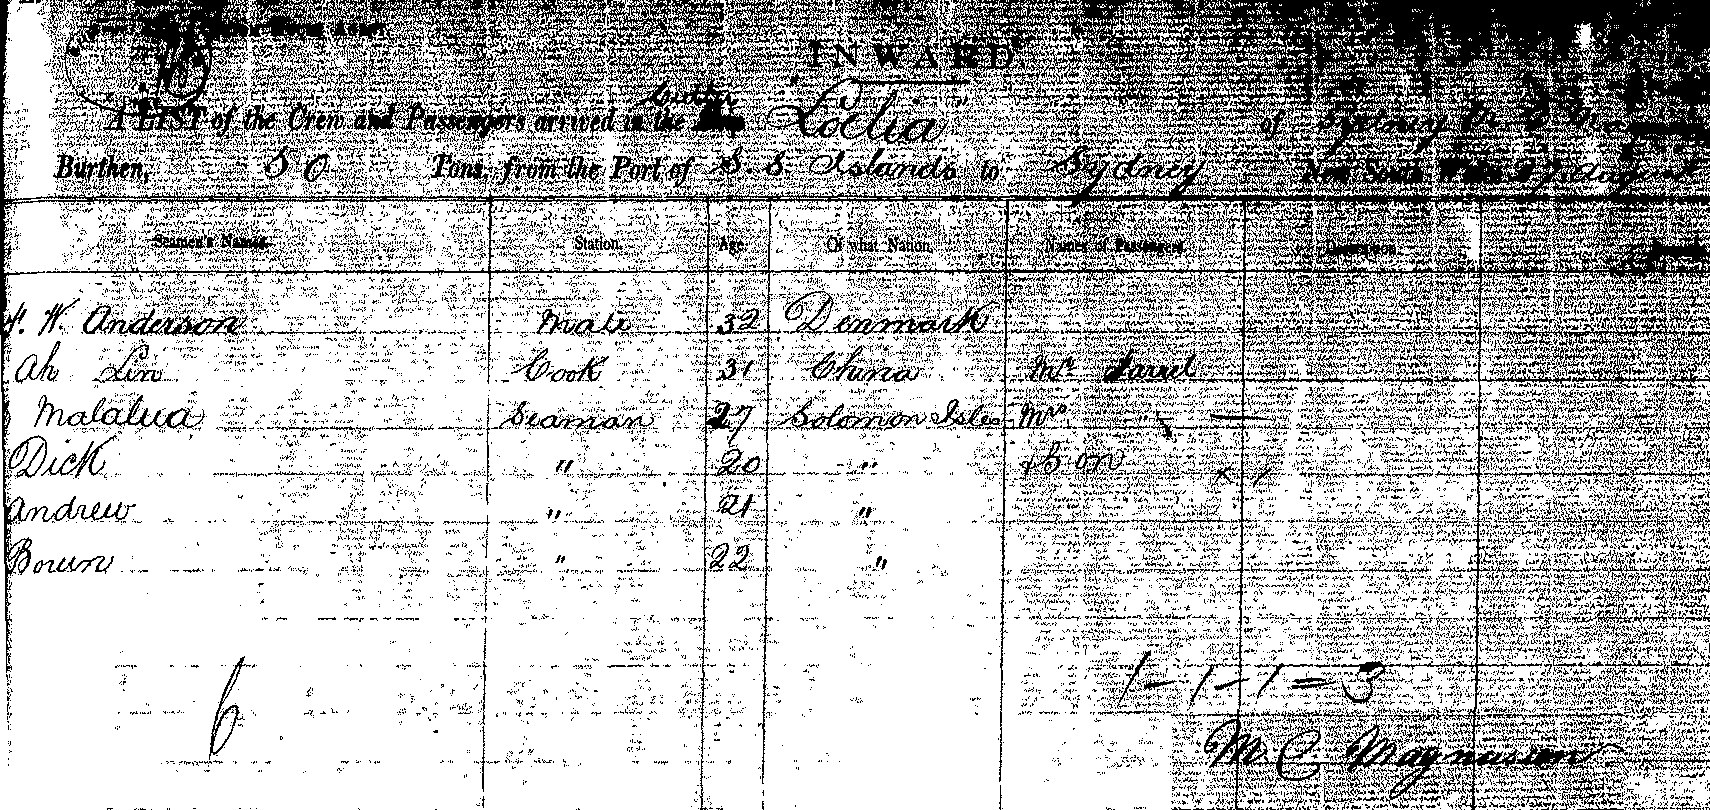 INWARD
A LIST of the Crew and Passengers arrived in the Cutter "Loelia" of Sydney
Burthen, 50 Tons, from the Port of S. S. Islands to Sydney New South Wales August
Seamen's Names. Station. Age. Of what Nation. Names of Passengers.
W. Anderson Mate 32 Denmark
Ah Lin Cook 31 China Mr
Malalua Seaman 27 Solomon Isles Mrs "
Dick " 20 "
Andrew " 21 "
" 22 "
1-1-1=3
6
M. C. Magnusson